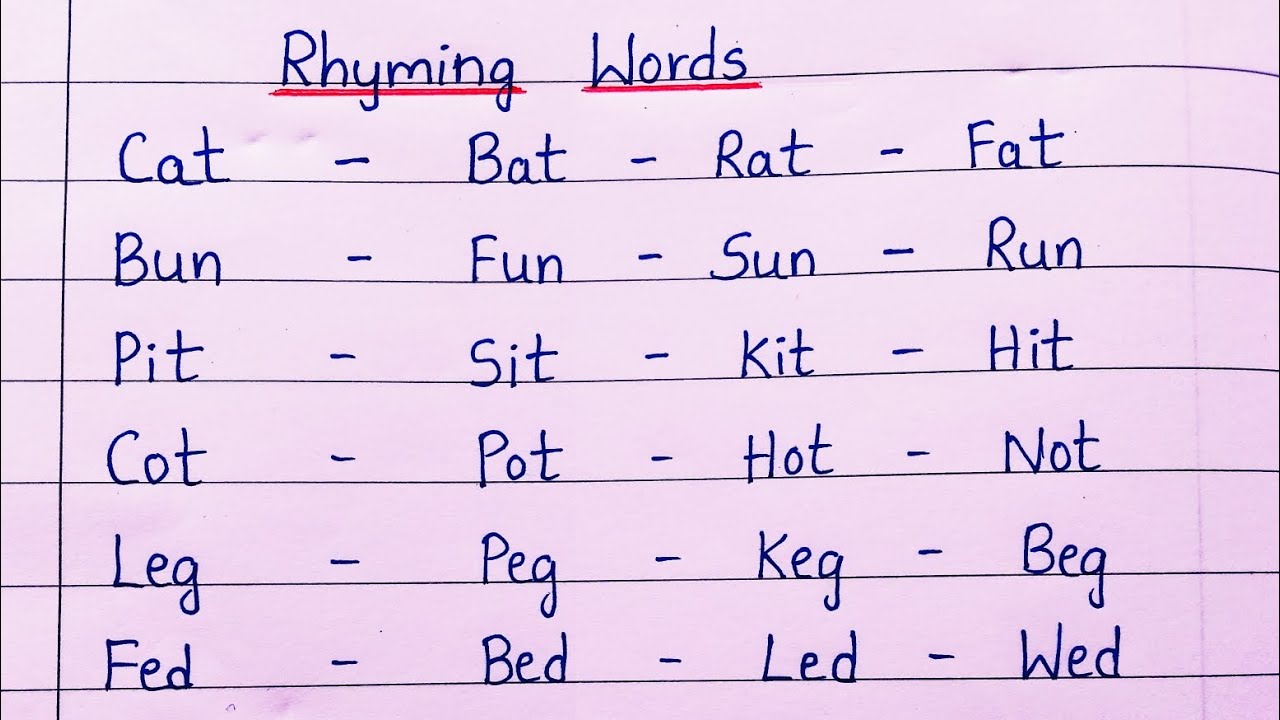 Rhyming Words
Cat - Bat - Rat - Fat
Bun - Fun - Sun - Run
Pit - Sit - Kit - Hit
Cot - Pot - Hot - Not
Leg - Peg - Keg - Beg
Fed - Bed - Led - Wed